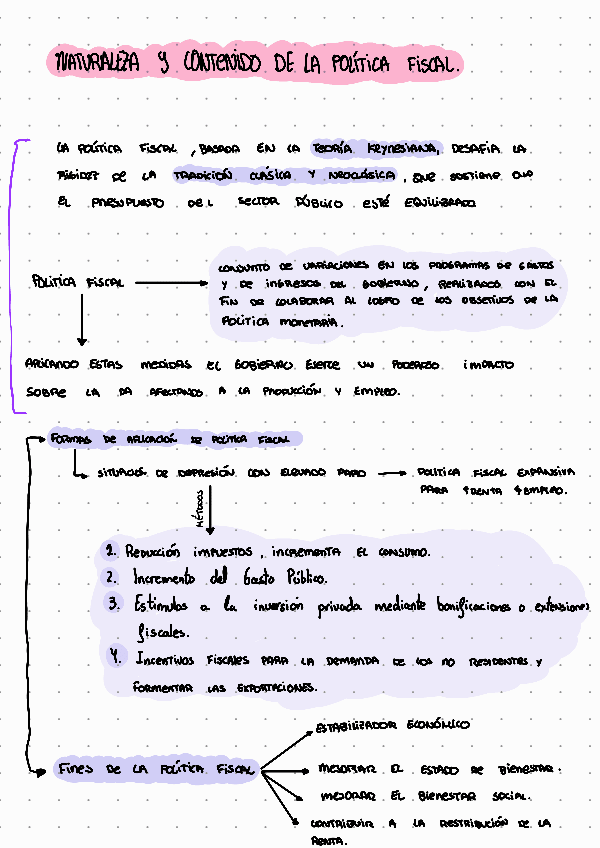 NATURALEZA Y CONTENIDO DE LA POLÍTICA FISCAL.
LA POLÍTICA FISCAL, BASADA EN LA TEORÍA KEYNESIANA, DESAFIA LA
RIGIDEZ DE LA TRADICIÓN CLÁSICA Y NEOCLÁSICA, QUE SOSTIENE QUE
EL PRESUPUESTO DEL SECTOR PÚBLICO ESTÉ EQUILIBRADO
POLÍTICA FISCAL
CONJUNTO DE VARIACIONES EN LOS PROGRAMAS DE GASTOS
Y DE INGRESOS DEL GOBIERNO, REALIZADOS CON EL
FIN DE COLABORAR AL LOGRO DE LOS OBJETIVOS DE LA
POLÍTICA MONETARIA.
APLICANDO ESTAS MEDIDAS EL GOBIERNO EJERCE UN PODEROSO IMPACTO
SOBRE LA DA AFECTANDO A LA PRODUCCIÓN Y EMPLEO.
FORMAS DE APLICACIÓN DE POLÍTICA FISCAL
SITUACIÓN DE DEPRESIÓN CON ELEVADO PARO
POLÍTICA FISCAL EXPANSIVA
PARA ↑RENTA ↑EMPLEO.
MÉTODOS
1. REDUCCIÓN IMPUESTOS, INCREMENTA EL CONSUMO.
2. Incremento del Gasto Público.
3. Estímulos a la inversión privada mediante bonificaciones o extensiones
fiscales.
4. INCENTIVOS FISCALES PARA LA DEMANDA DE LOS NO RESIDENTES Y
FORMENTAR LAS EXPORTACIONES.
FINES DE LA POLÍTICA FISCAL
ESTABILIZADOR ECONÓMICO
MEJORAR EL ESTADO DE BIENESTAR.
MEJORAR EL BIENESTAR SOCIAL.
CONTRIBUIR A LA RESTRIBUCIÓN DE LA
RENTA.